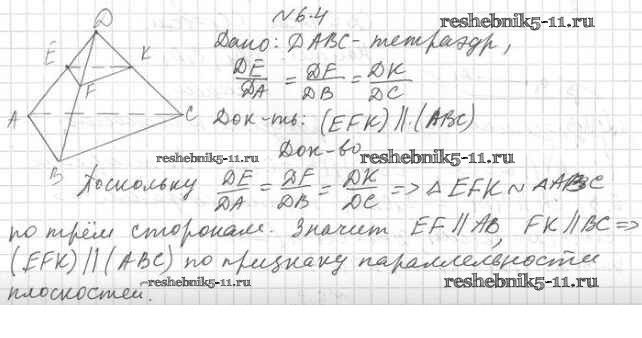 №6.4
reshebnik5-11.ru
D
E
K
F
A
C
B
Дано: DABC - тетраэдр,
DE/DA = DF/DB = DK/DC
Док-ть: (EFK) || (ABC)
reshebnik5-11.ru
reshebnik5-11.ru
Док-во
Поскольку DE/DA = DF/DB = DK/DC => △EFK ~ △ABC
по трём сторонам. Значит EF || AB, FK || BC =>
(EFK) || (ABC) по признаку параллельности
плоскостей.
reshebnik5-11.ru
reshebnik5-11.ru